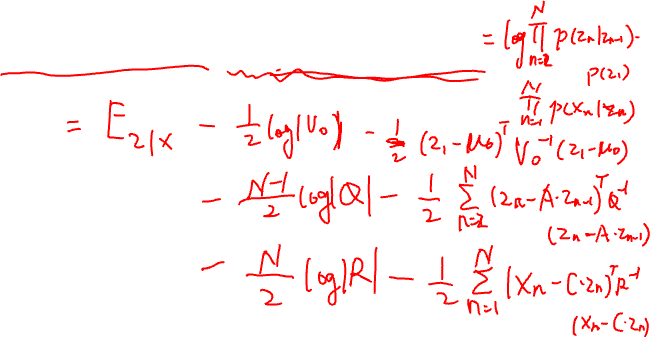 = log ∏_{n=2}^{N} p(z_n|z_{n-1}) ·
p(z_1)
∏_{n=1}^{N} p(x_n|z_n)
= E_{z|x} - 1/2 log|V_0| - 1/2 (z_1 - μ_0)^T V_0^{-1} (z_1 - μ_0)
- (N-1)/2 log|Q| - 1/2 ∑_{n=2}^{N} (z_n - A·z_{n-1})^T Q^{-1}
(z_n - A·z_{n-1})
- N/2 log|R| - 1/2 ∑_{n=1}^{N} (x_n - C·z_n)^T R^{-1}
(x_n - C·z_n)